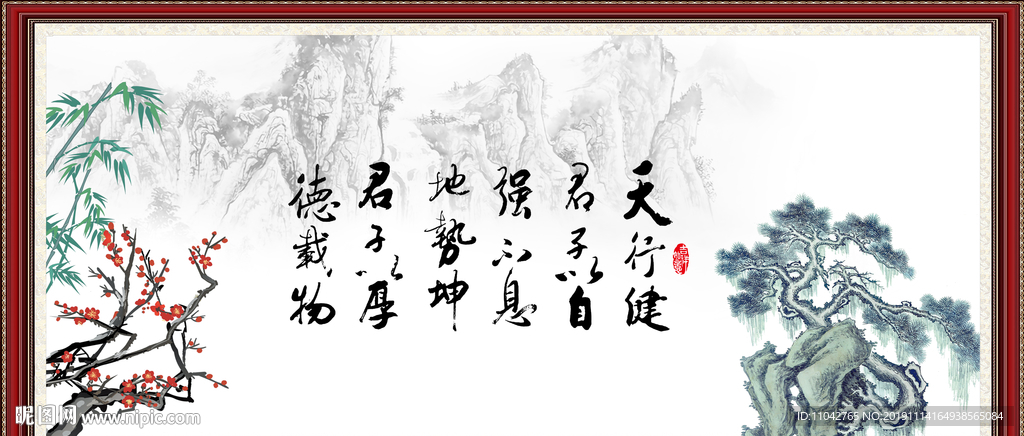 天行健
君子以自
强不息
地势坤
君子以厚
德载物
昵图网 www.nipic.com
ID:11042765 NO:20191114164938565084